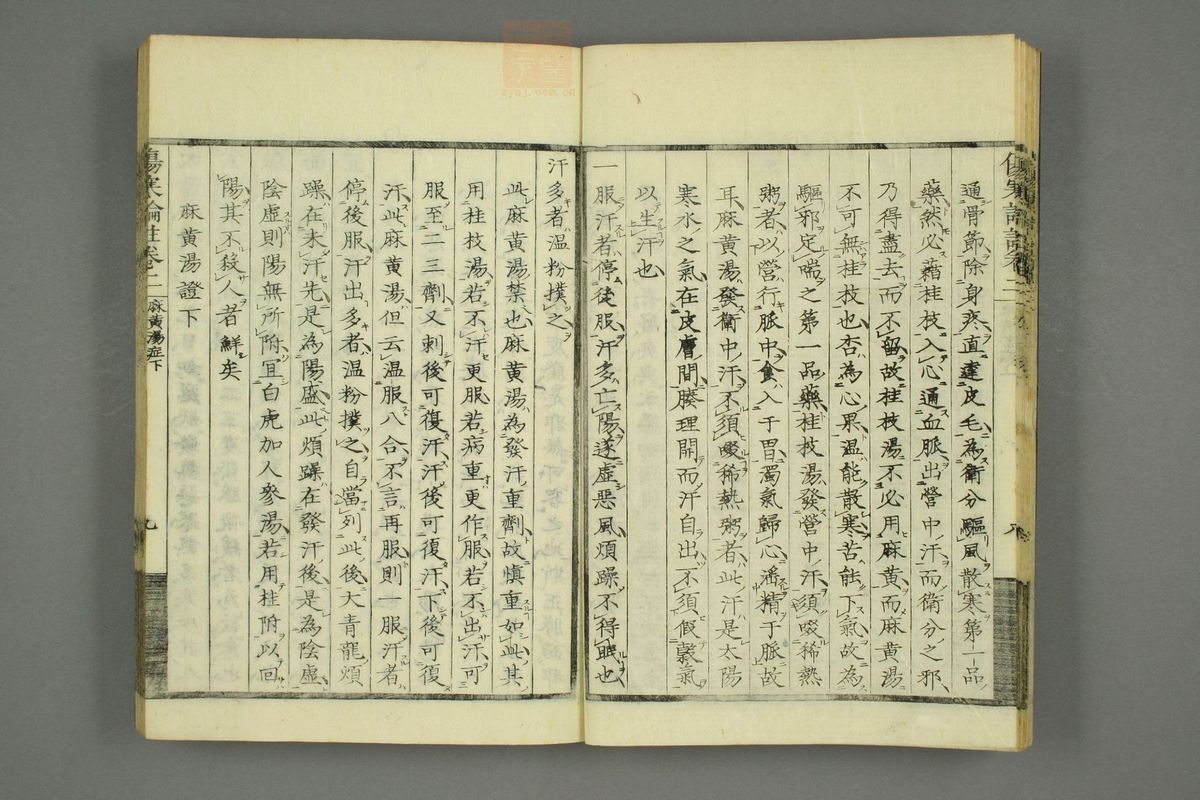 通骨節除身疼直達皮毛為衛分驅風散寒第一品
藥然必藉桂枝入心通血脈出營中汗而衛分之邪
乃得盡去而不留故桂枝湯不必用麻黃而麻黃湯
不可無桂枝也杏為心果温能散寒苦能下氣故為
驅邪定喘之第一品藥桂枝湯發營中汗須啜稀熱
粥者以營行脈中食入于胃濁氣歸心滛精于脈故
耳麻黃湯發衛中汗不須啜稀熱粥者此汗是太陽
寒水之氣在皮膚間腠理開而汗自出不須假糓氣
以生汗也
一服汗者停後服汗多亡陽遂虛惡風煩躁不得眠也
汗多者温粉撲之
此麻黃湯禁也麻黃湯為發汗重劑故慎重如此其
用桂枝湯若不汗更服若病重更作服若不出汗可
服至二三劑又刺後可復汗汗後可復汗下後可復
汗此麻黃湯但云温服八合不言再服則一服汗者
停後服汗出多者温粉撲之自當列此後大青龍煩
躁在未汗先是為陽盛此煩躁在發汗後是為陰虛
陰虛則陽無所附宜白虎加人參湯若用桂附以回
陽其不殺人者鮮矣
麻黃湯證下
傷寒論註卷二 麻黃湯症下 九